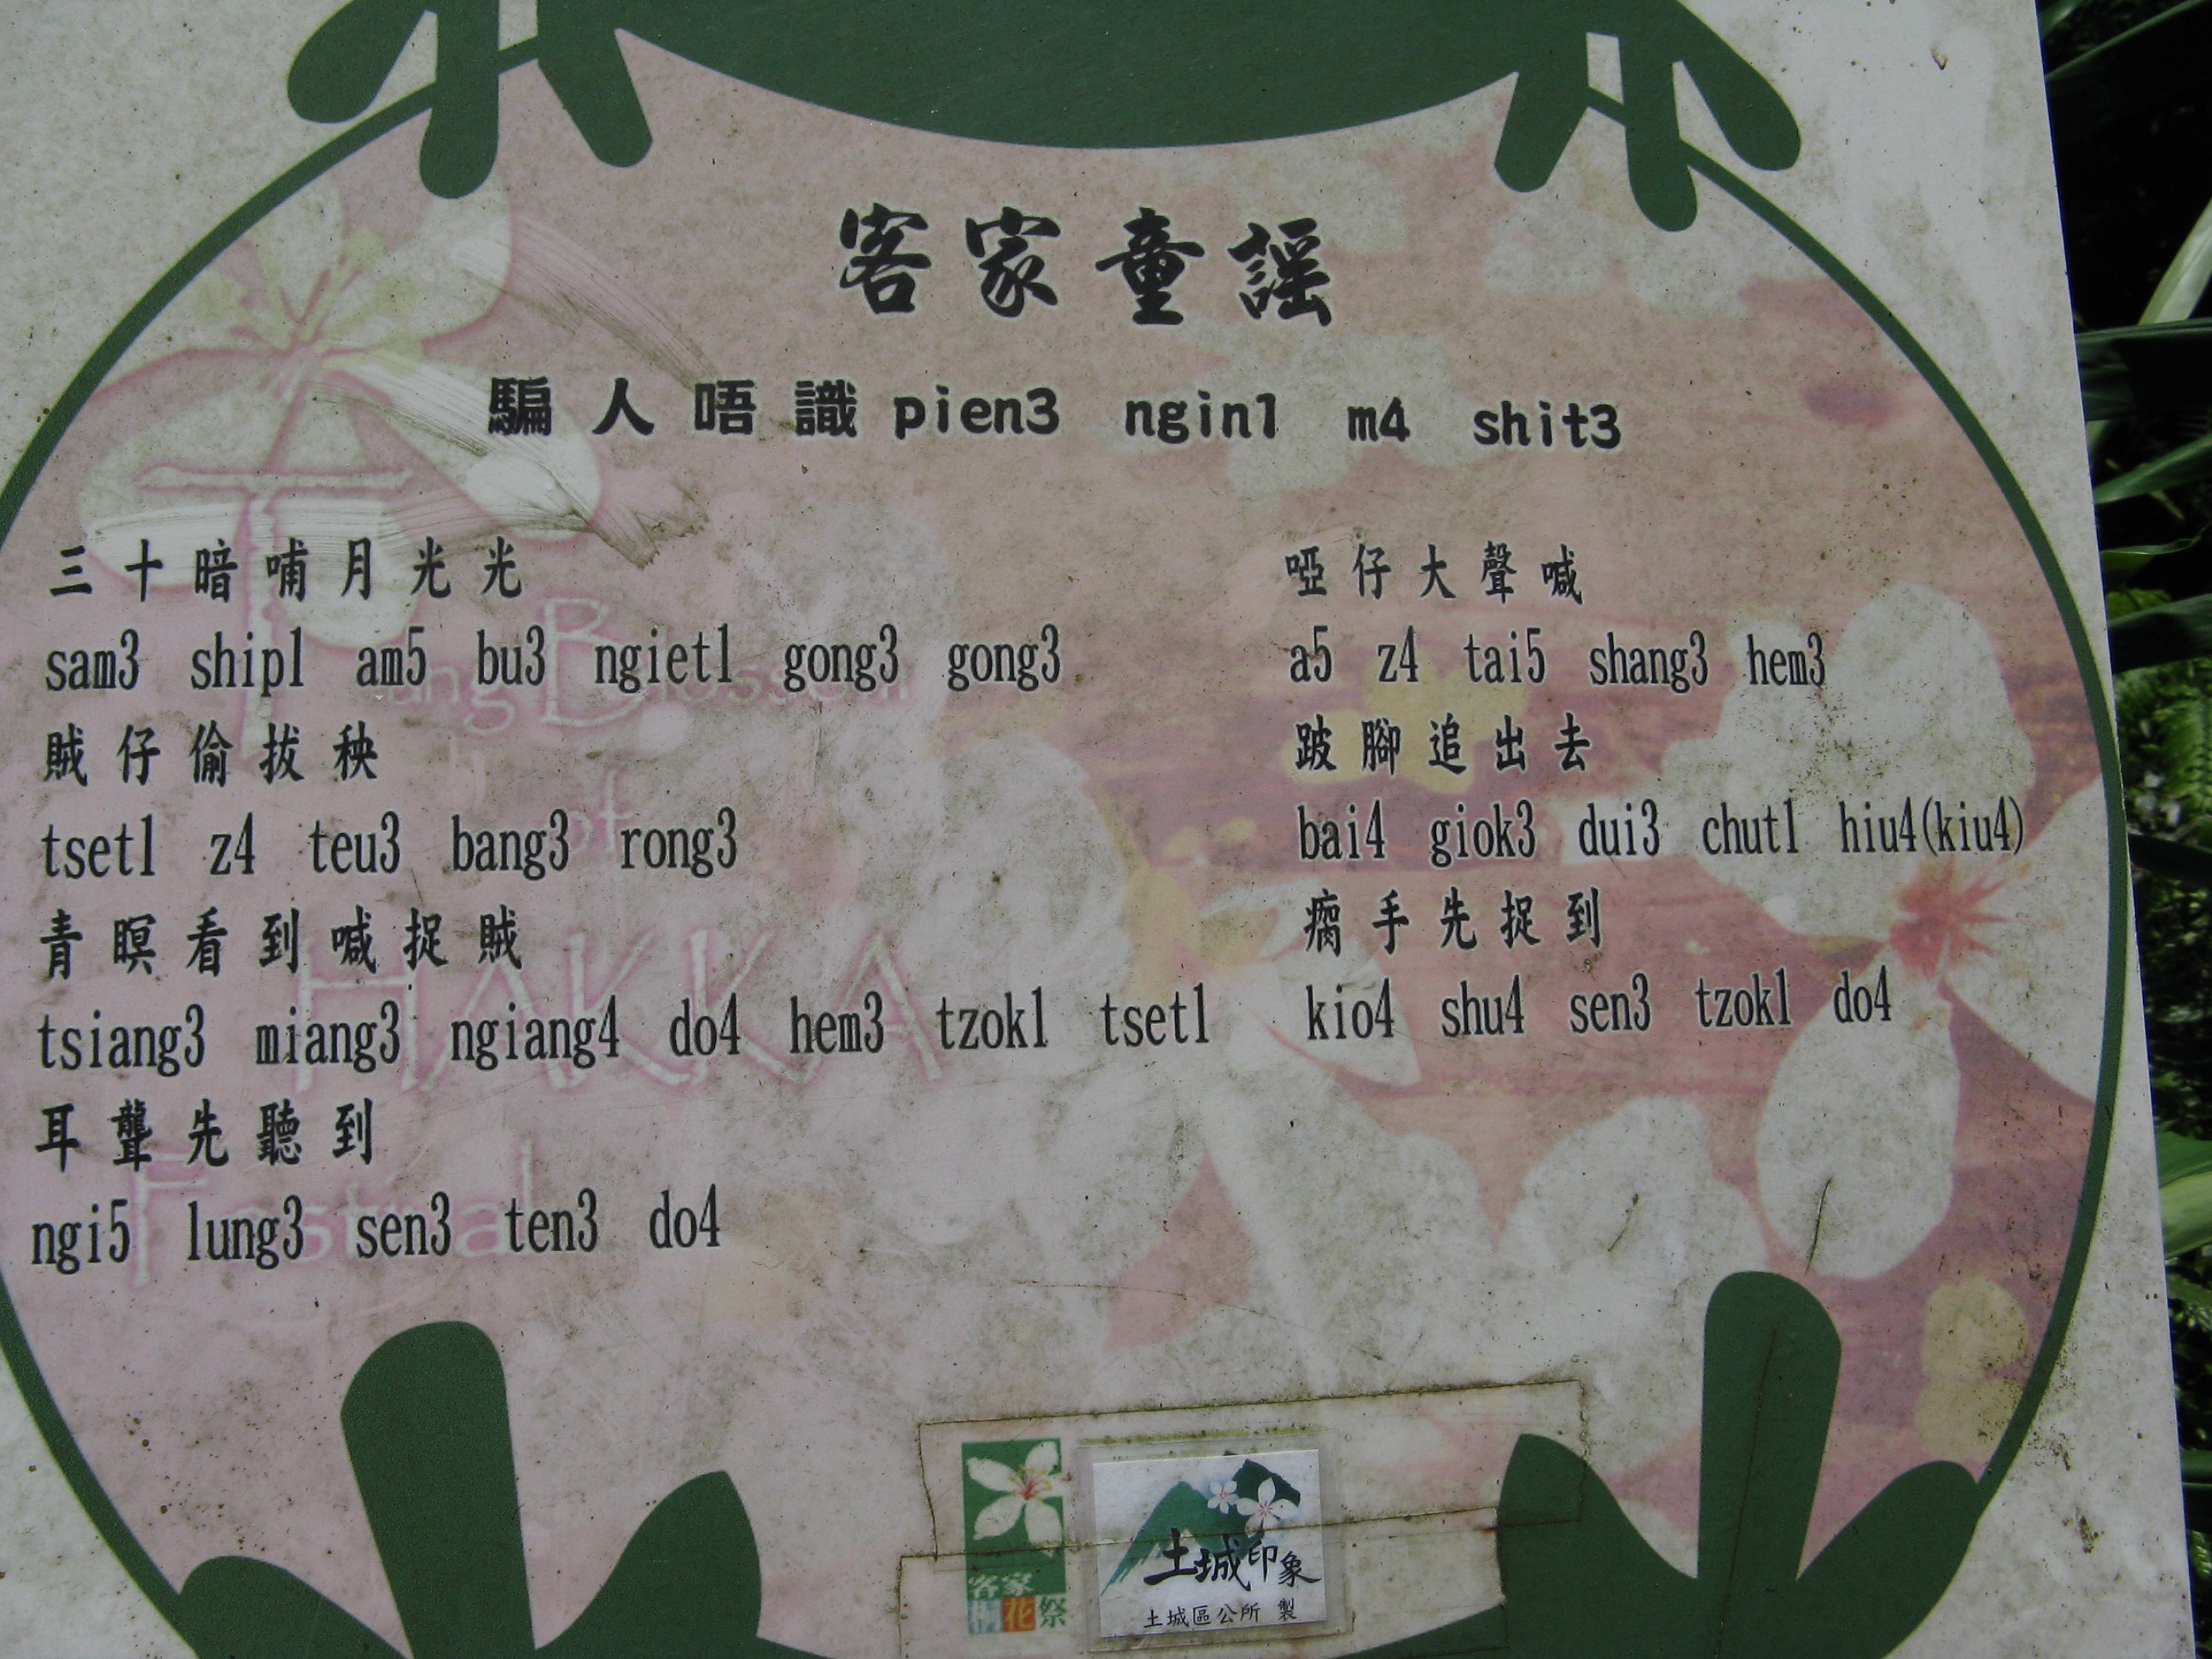 客家童謠
騙人唔識 pien3 ngin1 m4 shit3
三十暗哺月光光
sam3 ship1 am5 bu3 ngiet1 gong3 gong3
賊仔偷拔秧
tset1 z4 teu3 bang3 rong3
青瞑看到喊捉賊
tsiang3 miang3 ngiang4 do4 hem3 tzok1 tset1
耳聾先聽到
ngi5 lung3 sen3 ten3 do4
啞仔大聲喊
a5 z4 tai5 shang3 hem3
跛腳追出去
bai4 giok3 dui3 chut1 hiu4(kiu4)
瘸手先捉到
kio4 shu4 sen3 tzok1 do4
Tung Blossom
HAKKA
Festival
客家
桐花祭
土城印象
土城區公所 製